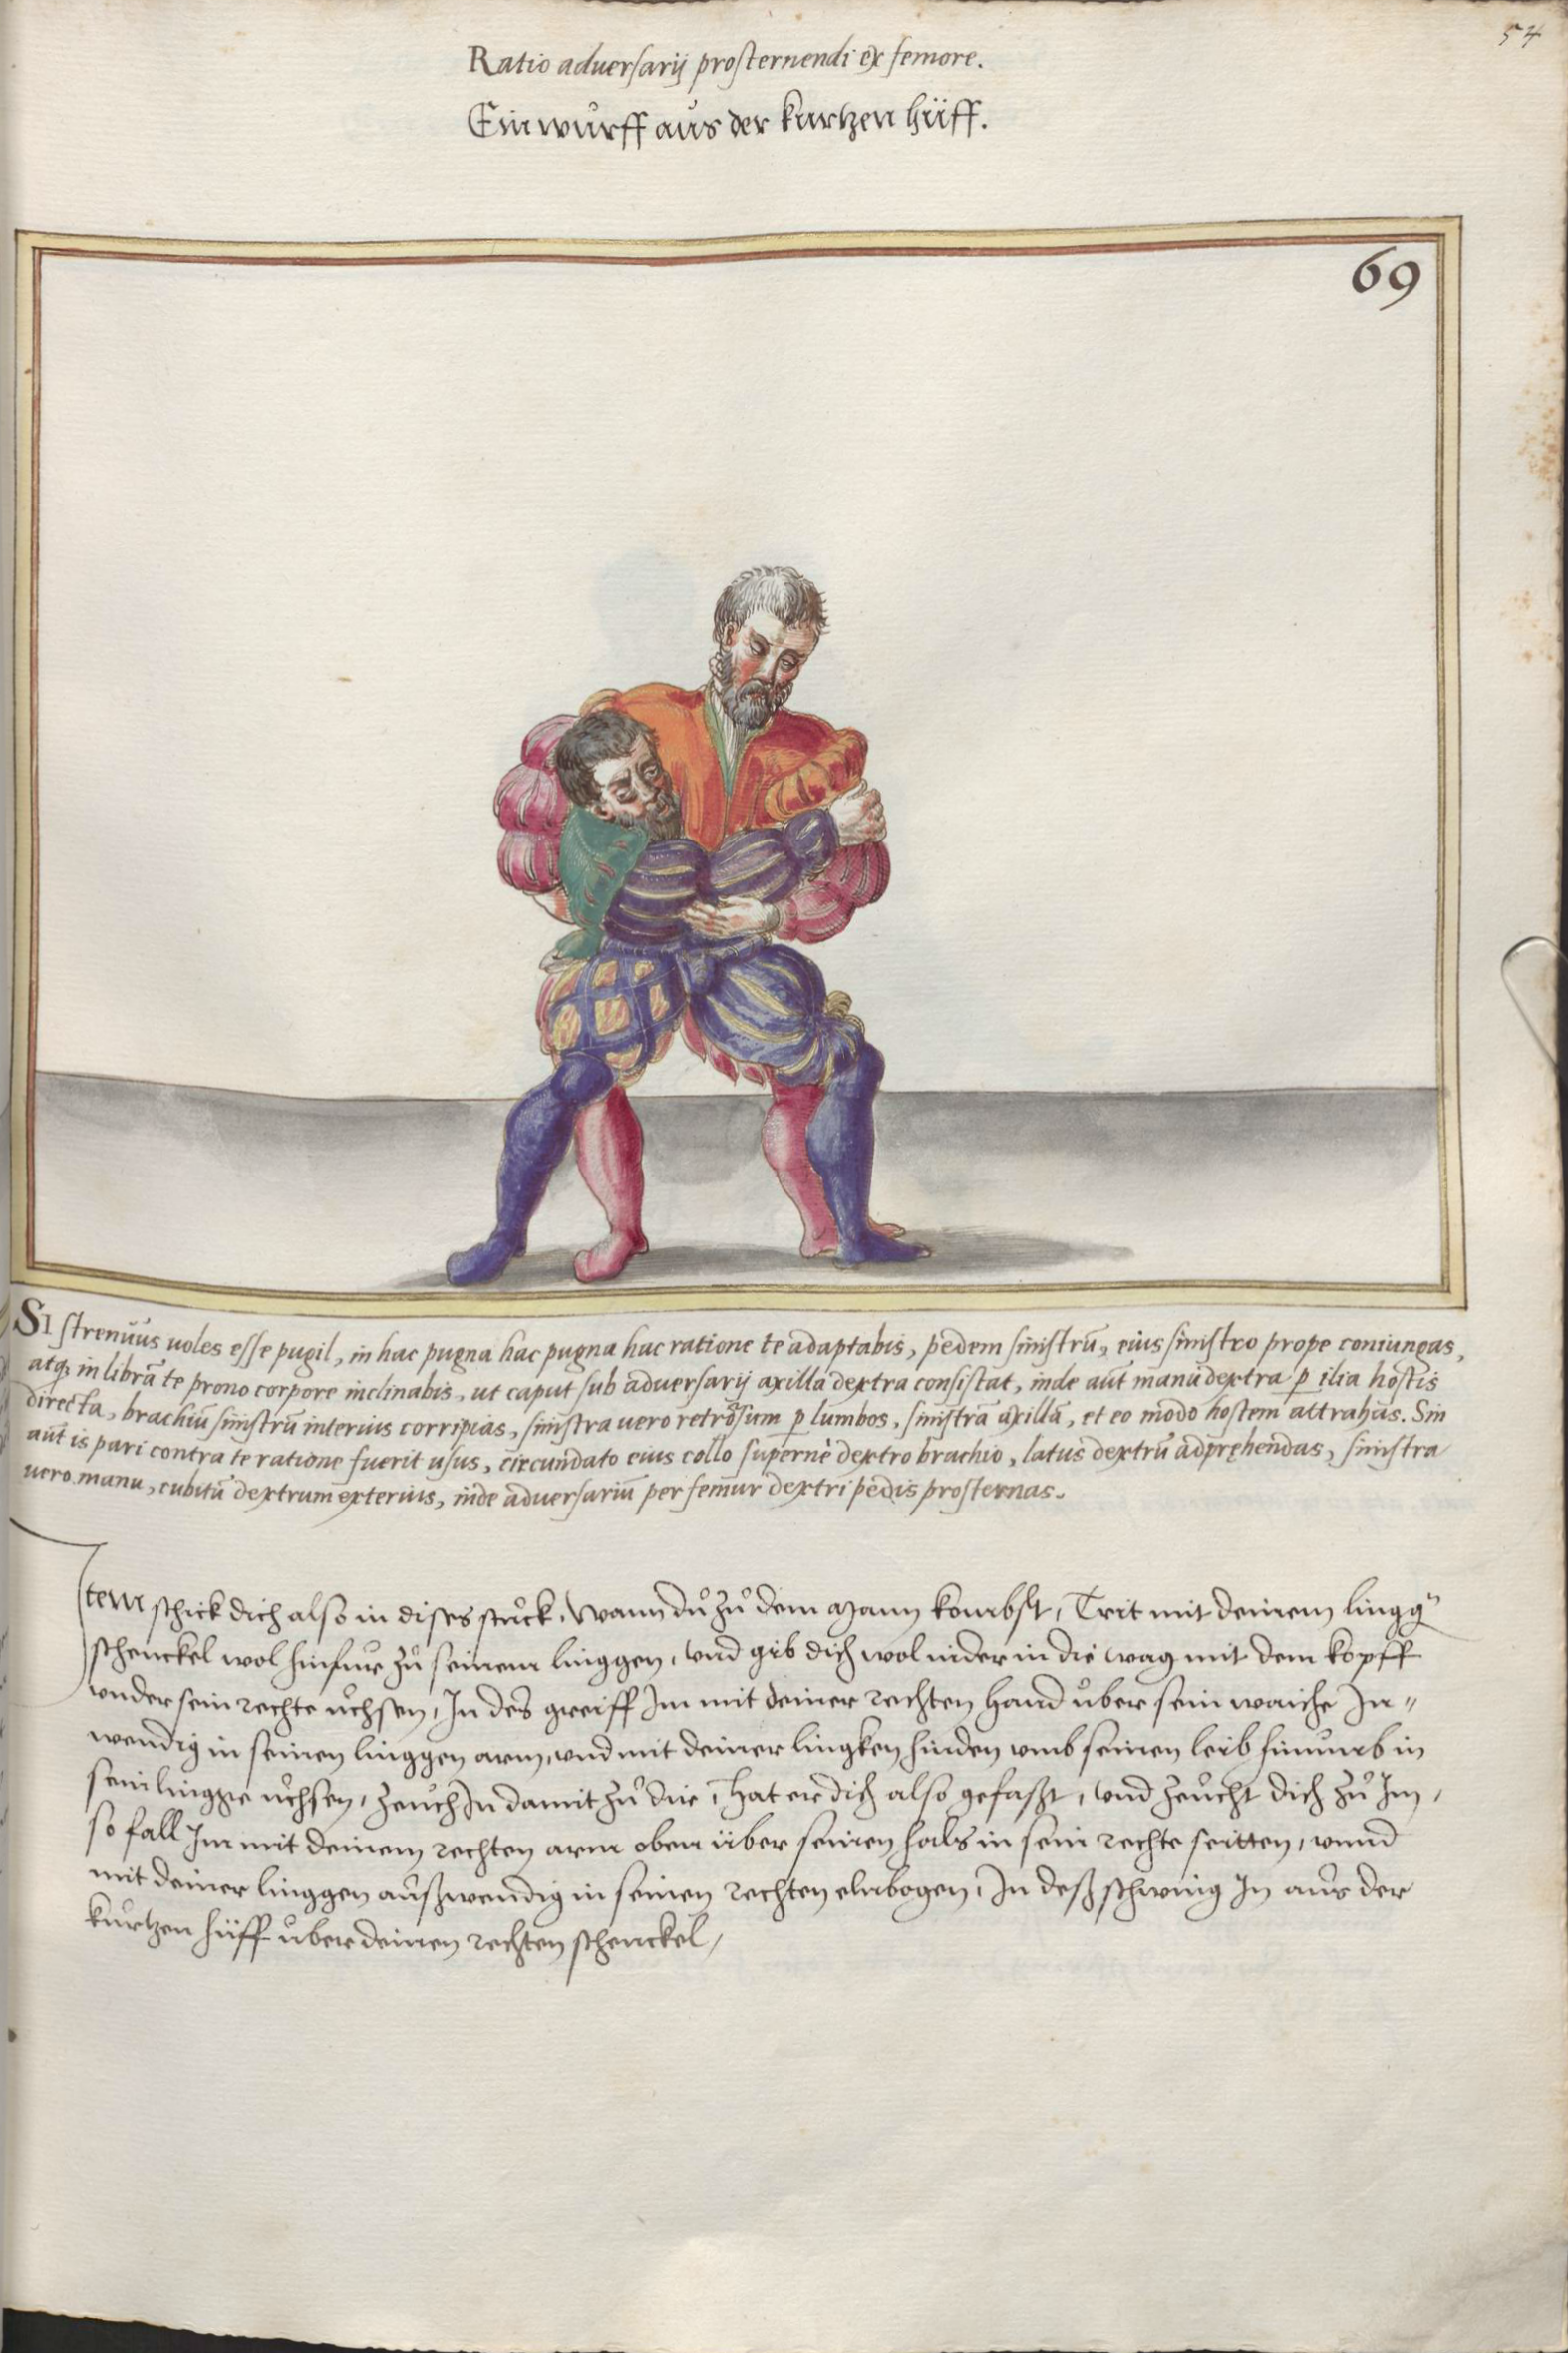 54
Ratio aduersarij prosternendi ex femore.
Ein wurff aus der kurtzen hüff.
69
SI strenuus uoles esse pugil, in hac pugna hac pugna hac ratione te adaptabis, pedem sinistrũ, eius sinistro prope coniungas,
atq; in librã te prono corpore inclinabis, ut caput sub aduersarij axilla dextra consistat, inde aũt manu dextra p ilia hostis
directa, brachiũ sinistrũ interius corripias, sinistra uero retrõsum p lumbos, sinistrã axillã, et eo modo hostem attrahas. Sin
aũt is pari contra te ratione fuerit usus, circundato eius collo supernè dextro brachio, latus dextrũ adpręhendas, sinistra
uero manu, cubitũ dextrum exterius, inde aduersariũ per femur dextri pedis prosternas.
Item schick dich also in dises stuck, Wann dů zů dem Mann kombst, Trit mit deinem lingg
schenckel wol hinfur zů seinem linggen, vnd gib dich wol nider in die wag mit dem kopff
vnder sein rechte uchsen, In des greiff Im mit deiner rechten hand uber sein waiche In-
wendig in seinen linggen arm, vnd mit deiner lingken hinden vmb seinen leib hinumb in
sein lingge uchsen, zeuch In damit zů dir, hat er dich also gefaßt, vnd zeucht dich zů Im,
so fall Im mit deinem rechten arm oben über seinen hals in sein rechte seitten, vnnd
mit deiner linggen außwendig in seinen rechten elnbogen, In deß schwing In aus der
kurtzen hüff uber deinen rechten schenckel,